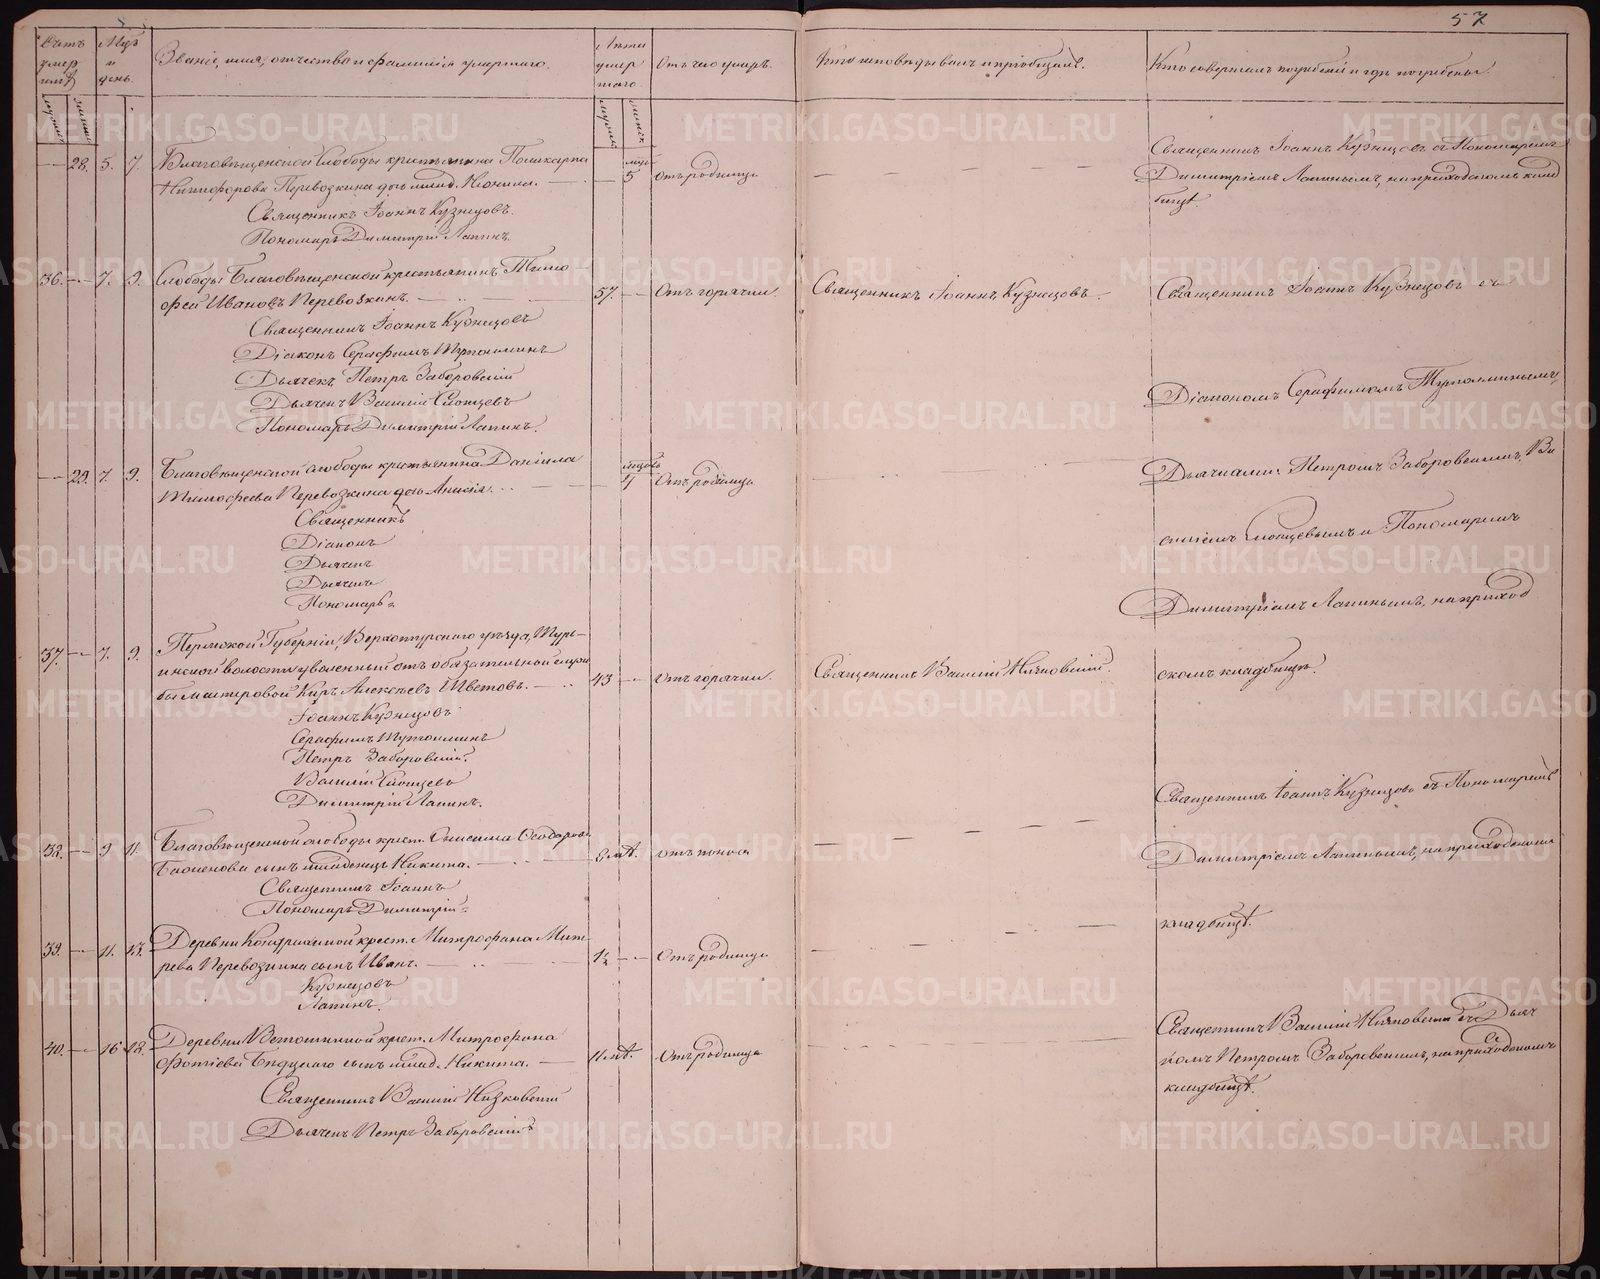 57
Счетъ умершихъ
Мѣс. и день.
Званіе, имя, отчество и фамилія умершаго.
Лѣта умершаго.
Отъ чего умеръ.
Кто исповѣдывалъ и пріобщалъ.
Кто совершалъ погребеніе и гдѣ погребены.
28. 5. 7. Благовѣщенской слободы крестьянина Поликарпа
Никифорова Перевозкина дочь млад. Неонила.
5
Отъ родимца
Священникъ Іоаннъ Кузнецовъ съ Пономаремъ
Димитріемъ Лапинымъ, на приходскомъ клад
бищѣ.
Священникъ Іоаннъ Кузнецовъ.
Пономарь Димитрій Лапинъ.
36. 7. 9. Слободы Благовѣщенской крестьянинъ Тимо
фей Ивановъ Перевозкинъ.
57.
Отъ горячки.
Священникъ Іоаннъ Кузнецовъ.
Священникъ Іоаннъ Кузнецовъ съ
Священникъ Іоаннъ Кузнецовъ
Діаконъ Серафимъ
Дьячекъ Петръ Заборовскій
Дьячекъ Василій Словцевъ
Пономарь Димитрій Лапинъ.
Діакономъ Серафимомъ
29. 7. 9. Благовѣщенской слободы крестьянина Даніила
Тимофеева Перевозкина дочь Анисія.
Отъ родимца
Дьячками: Петромъ Заборовскимъ, Ва
Священникъ
Діаконъ
Дьячекъ
Дьячекъ
Пономарь
силіемъ Словцевымъ и Пономаремъ
Димитріемъ Лапинымъ, на приход
37. 7. 9. Пермской Губерніи, Верхотурскаго уѣзда, Турь-
инской волости уволенный отъ обязательной служ
бы мастеровой Киръ Алексѣевъ Цветовъ.
43
Отъ горячки.
Священникъ Василій Низковскій.
скомъ кладбищѣ.
Іоаннъ Кузнецовъ
Серафимъ
Петръ Заборовскій.
Василій Словцевъ
Димитрій Лапинъ.
38. 9 11. Благовѣщенской слободы крест. Онисима Ѳеодоров.
Баженова сынъ младенецъ Никита.
отъ поноса
Священникъ Іоаннъ Кузнецовъ съ Пономаремъ
Димитріемъ Лапинымъ, на приходскомъ
кладбищѣ.
Священникъ Іоаннъ
Пономарь Димитрій
39. 11. 13. Деревни крест. Митрофана
Перевозкина сынъ Иванъ.
1½
Отъ родимца
Кузнецовъ
Лапинъ.
40. 16 18. Деревни крест. Митрофана
Фотіева сынъ млад. Никита.
Отъ родимца
Священникъ Василій Низковскій съ Дьяч
комъ Петромъ Заборовскимъ, на приходскомъ
кладбищѣ.
Священникъ Василій Низковскій
Дьячекъ Петръ Заборовскій
METRIKI.GASO-URAL.RU